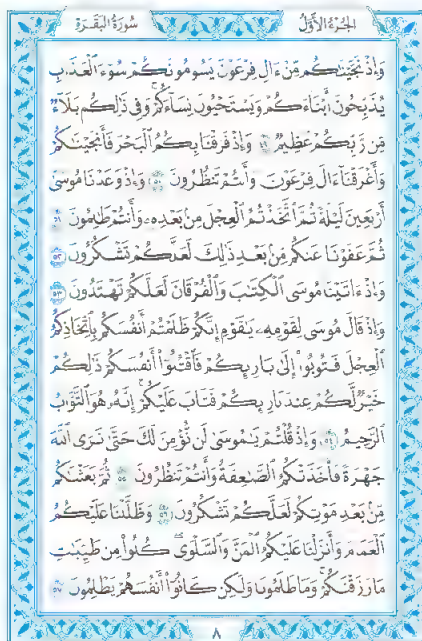 الجزء الأول سورة البقرة
وَإِذْ نَجَّيْنَٰكُم مِّنْ ءَالِ فِرْعَوْنَ يَسُومُونَكُمْ سُوٓءَ ٱلْعَذَابِ
يُذَبِّحُونَ أَبْنَآءَكُمْ وَيَسْتَحْيُونَ نِسَآءَكُمْ ۚ وَفِى ذَٰلِكُم بَلَآءٌ
مِّن رَّبِّكُمْ عَظِيمٌ ٤٩ وَإِذْ فَرَقْنَا بِكُمُ ٱلْبَحْرَ فَأَنجَيْنَٰكُمْ
وَأَغْرَقْنَآ ءَالَ فِرْعَوْنَ وَأَنتُمْ تَنظُرُونَ ٥٠ وَإِذْ وَٰعَدْنَا مُوسَىٰٓ
أَرْبَعِينَ لَيْلَةً ثُمَّ ٱتَّخَذْتُمُ ٱلْعِجْلَ مِنۢ بَعْدِهِۦ وَأَنتُمْ ظَٰلِمُونَ ٥١
ثُمَّ عَفَوْنَا عَنكُم مِّنۢ بَعْدِ ذَٰلِكَ لَعَلَّكُمْ تَشْكُرُونَ ٥٢
وَإِذْ ءَاتَيْنَا مُوسَى ٱلْكِتَٰبَ وَٱلْفُرْقَانَ لَعَلَّكُمْ تَهْتَدُونَ ٥٣
وَإِذْ قَالَ مُوسَىٰ لِقَوْمِهِۦ يَٰقَوْمِ إِنَّكُمْ ظَلَمْتُمْ أَنفُسَكُم بِٱتِّخَاذِكُمُ
ٱلْعِجْلَ فَتُوبُوٓا۟ إِلَىٰ بَارِئِكُمْ فَٱقْتُلُوٓا۟ أَنفُسَكُمْ ذَٰلِكُمْ
خَيْرٌ لَّكُمْ عِندَ بَارِئِكُمْ فَتَابَ عَلَيْكُمْ ۚ إِنَّهُۥ هُوَ ٱلتَّوَّابُ
ٱلرَّحِيمُ ٥٤ وَإِذْ قُلْتُمْ يَٰمُوسَىٰ لَن نُّؤْمِنَ لَكَ حَتَّىٰ نَرَى ٱللَّهَ
جَهْرَةً فَأَخَذَتْكُمُ ٱلصَّٰعِقَةُ وَأَنتُمْ تَنظُرُونَ ٥٥ ثُمَّ بَعَثْنَٰكُم
مِّنۢ بَعْدِ مَوْتِكُمْ لَعَلَّكُمْ تَشْكُرُونَ ٥٦ وَظَلَّلْنَا عَلَيْكُمُ
ٱلْغَمَامَ وَأَنزَلْنَا عَلَيْكُمُ ٱلْمَنَّ وَٱلسَّلْوَىٰ ۖ كُلُوا۟ مِن طَيِّبَٰتِ
مَا رَزَقْنَٰكُمْ ۖ وَمَا ظَلَمُونَا وَلَٰكِن كَانُوٓا۟ أَنفُسَهُمْ يَظْلِمُونَ ٥٧
٨